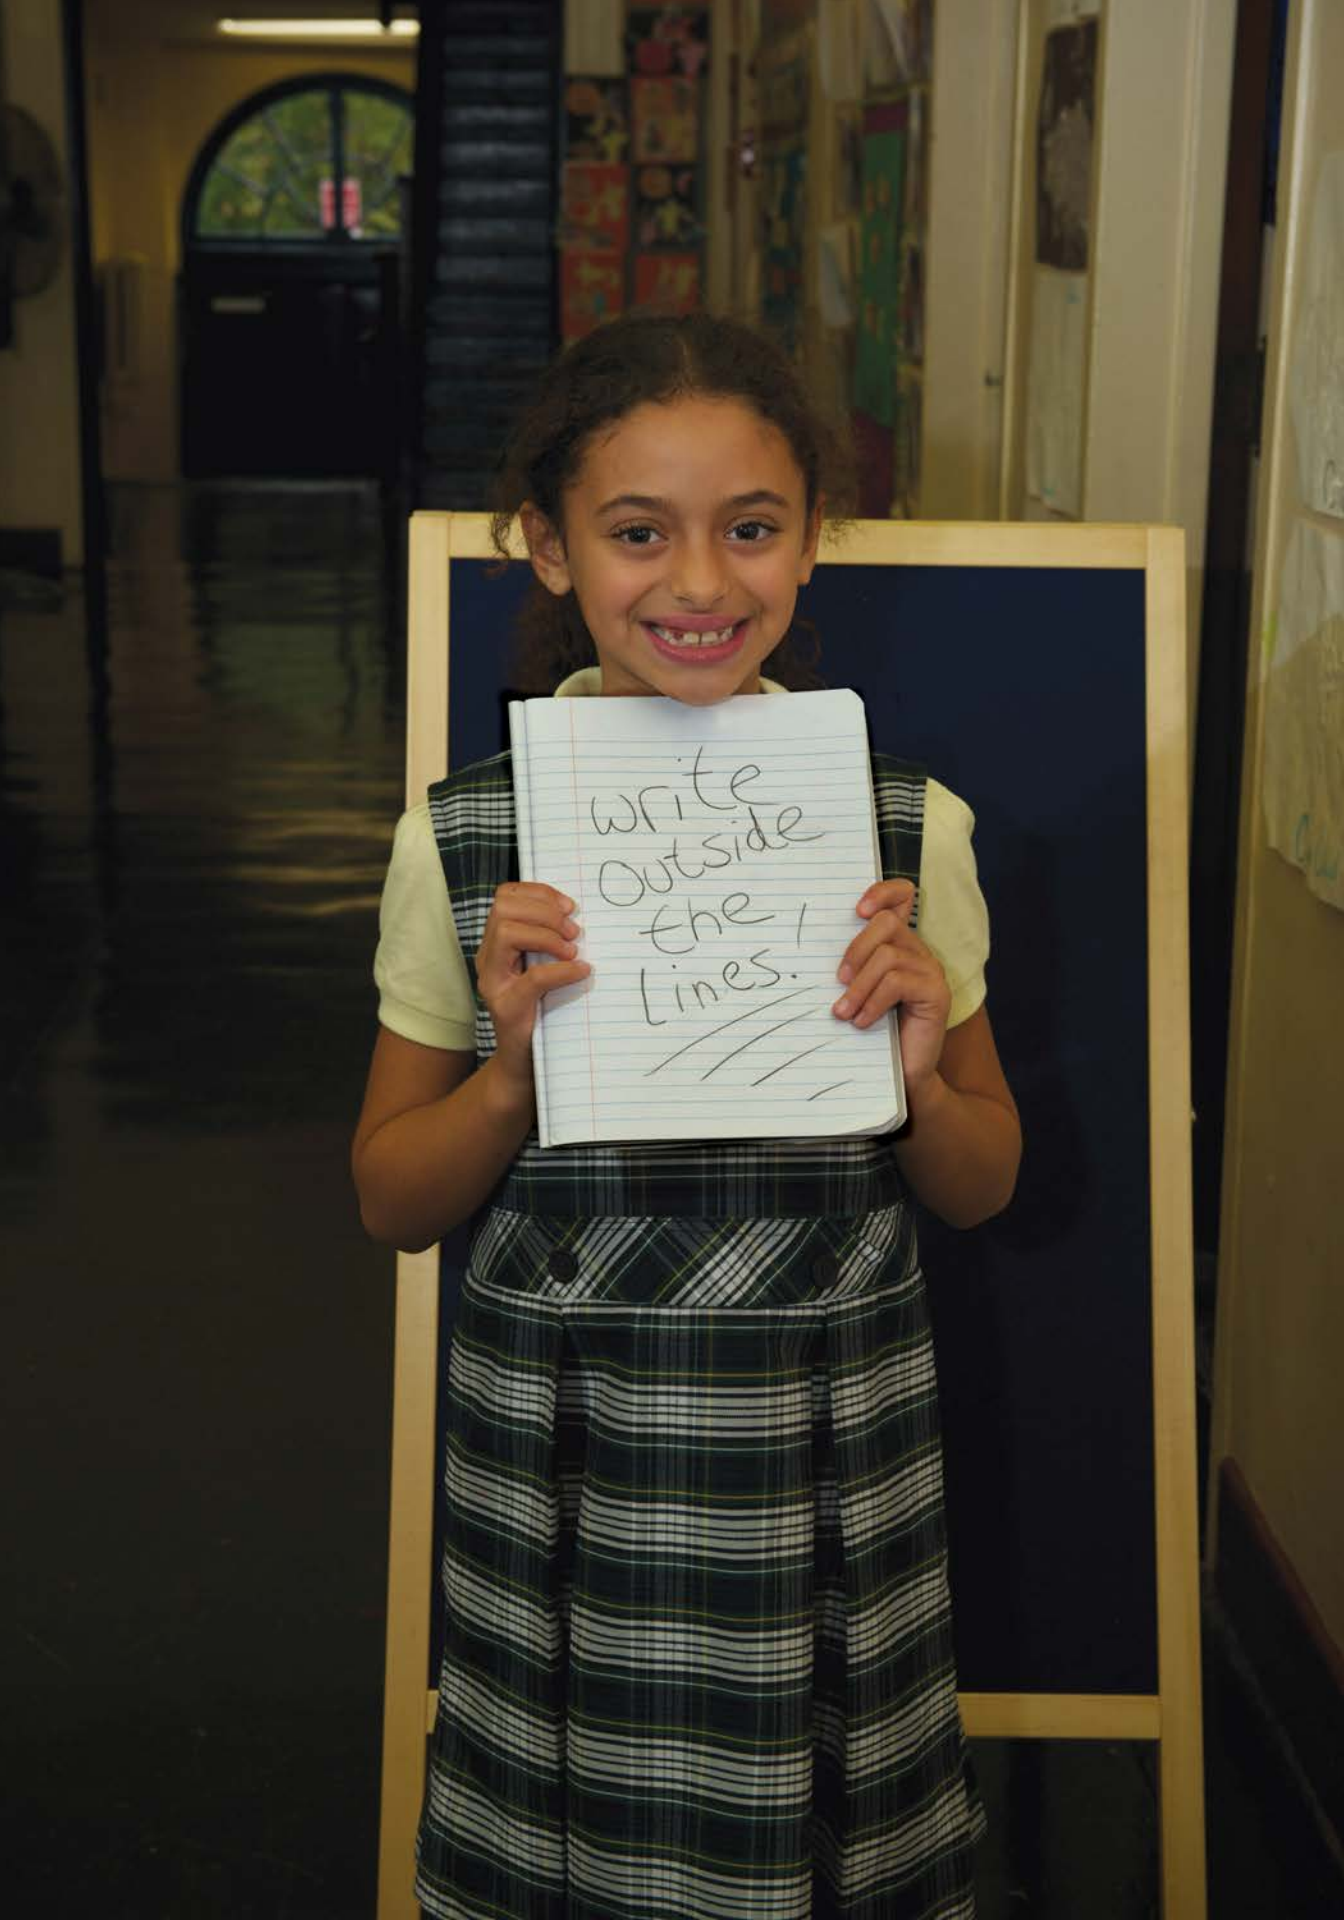 write
Outside
the
Lines!